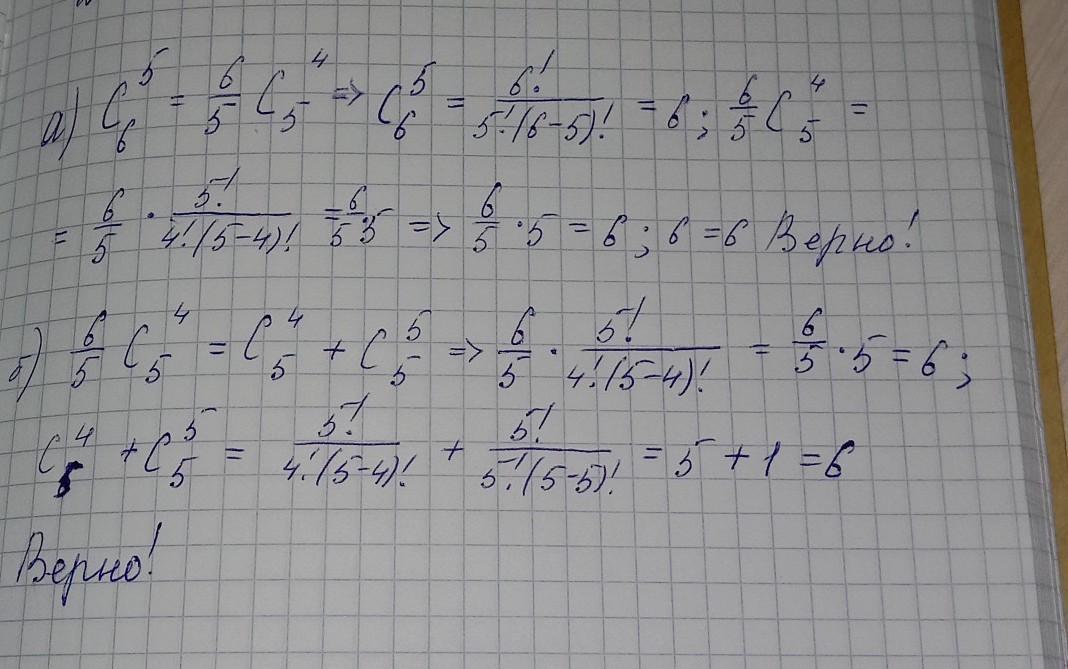 а) C₆⁵ = 6/5 C₅⁴ => C₆⁵ = 6!/5!(6-5)! = 6; 6/5 C₅⁴ =
= 6/5 · 5!/4!(5-4)! = 6/5·5 => 6/5 · 5 = 6; 6 = 6 Верно!
б) 6/5 C₅⁴ = C₅⁴ + C₅⁵ => 6/5 · 5!/4!(5-4)! = 6/5 · 5 = 6;
C₅⁴ + C₅⁵ = 5!/4!(5-4)! + 5!/5!(5-5)! = 5 + 1 = 6
Верно!